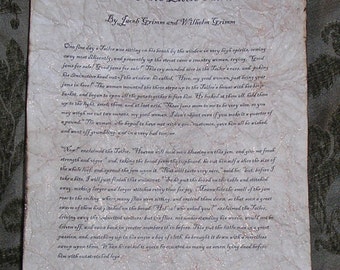 By Jacob Grimm and Wilhelm Grimm
One fine day a Tailor was sitting on his bench by the window in very high spirits, sewing
away most diligently, and presently up the street came a country woman, crying, "Good
jams for sale! Good jams for sale!" This cry sounded nice in the Tailor's ears, and poking
his diminutive head out of the window, he called, "Here, my good woman, just bring your
jams in here!" The woman mounted the three steps up to the Tailor's house with her large
basket, and began to open all the pots together before him. He looked at them all, held them
up to the light, smelt them, and at last said, "These jams seem to me to be very nice, so you
may weigh me out two ounces, my good woman; I don't object even if you make it a quarter of
a pound." The woman, who hoped to have met with a good customer, gave him all he wished,
and went off grumbling, and in a very bad temper.
"Now!" exclaimed the Tailor, "Heaven will send me a blessing on this jam, and give me fresh
strength and vigor;" and, taking the bread from the cupboard, he cut himself a slice the size of
the whole loaf, and spread the jam upon it. "That will taste very nice," said he; "but, before I
take a bite, I will just finish this waistcoat." So he put the bread on the table and stitched
away, making larger and larger stitches every time for joy. Meanwhile the smell of the jam
rose to the ceiling, where many flies were sitting, and enticed them down, so that soon a great
swarm of them had pitched on the bread. "Hollo! who asked you?" exclaimed the Tailor,
driving away the uninvited visitors; but the flies, not understanding his words, would not be
driven off, and came back in greater numbers than before. This put the little man in a great
passion, and, snatching up in his anger a bag of cloth, he brought it down with a merciless
swoop upon them. When he raised it again he counted as many as seven lying dead before
him with outstretched legs.